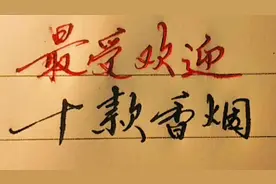 最受欢迎
十款香烟